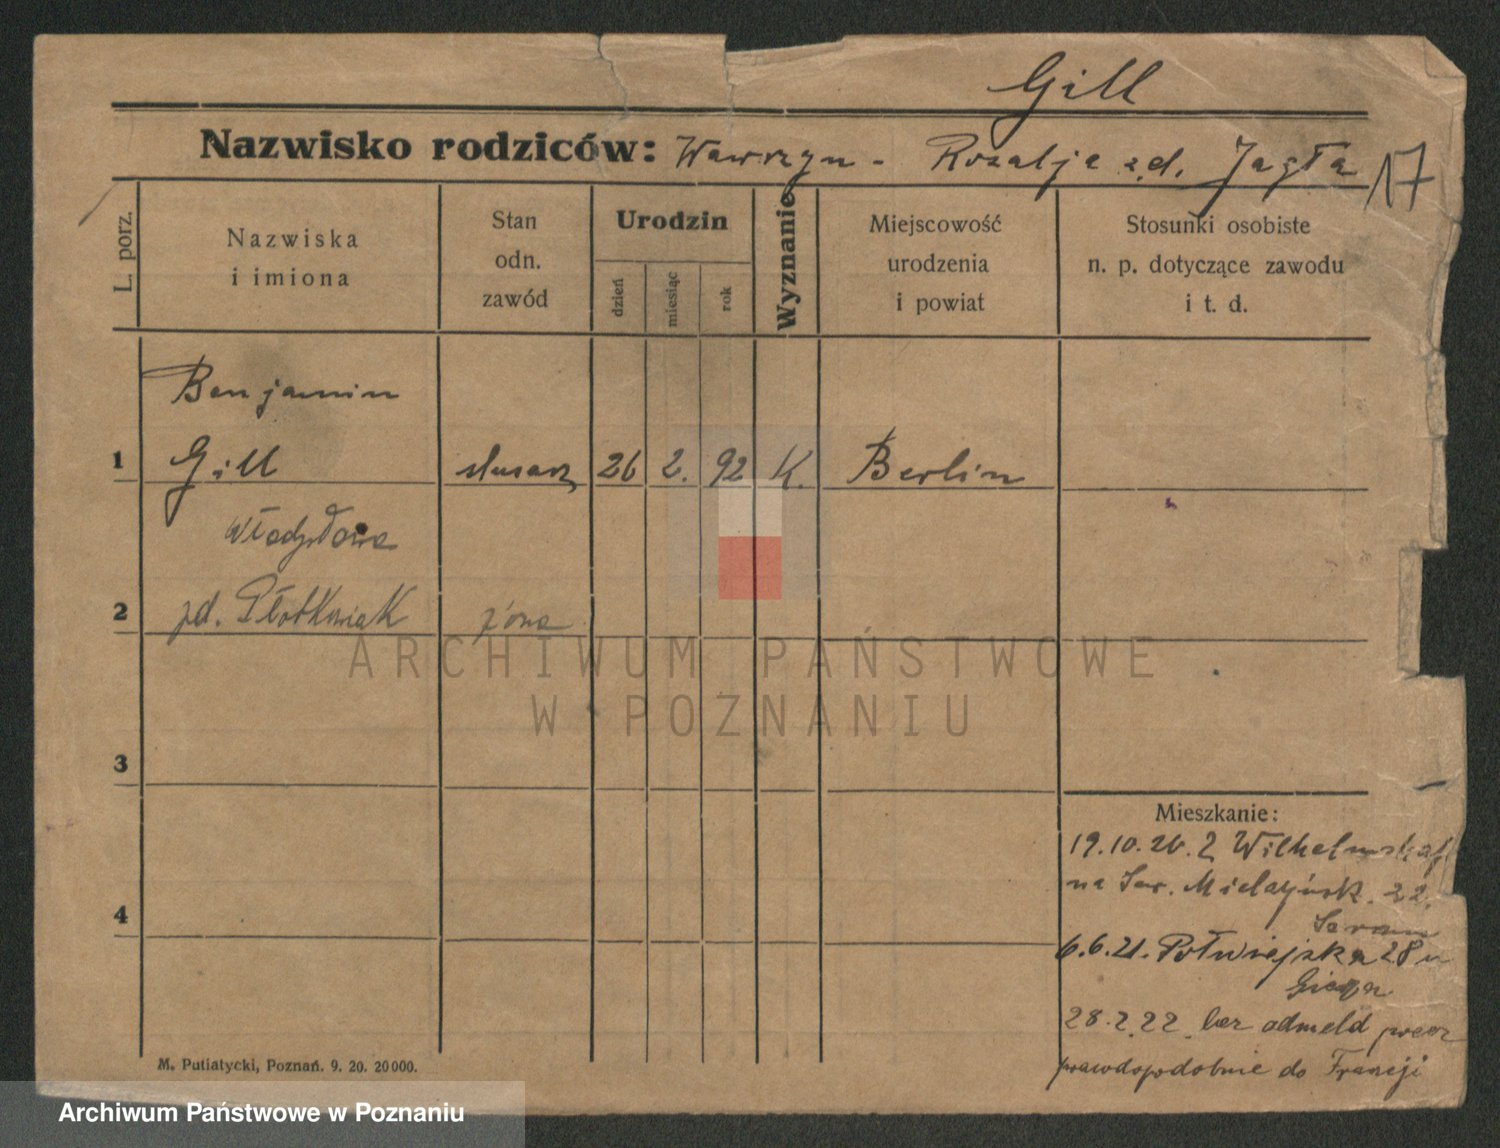 Gill
Nazwisko rodziców: Wawrzyn - Rozalja z.d. Jagła 17
L. porz.
Nazwiska
i imiona
Stan
odn.
zawód
Urodzin
dzień
miesiąc
rok
Wyznanie
Miejscowość
urodzenia
i powiat
Stosunki osobiste
n. p. dotyczące zawodu
i t. d.
Benjamin
1 Gill ślusarz 26 2. 92 K. Berlin
Władysława
2 zd. Płotkowiak żona
3
4
ARCHIWUM PAŃSTWOWE
W POZNANIU
Mieszkanie:
19.10.20. z
na Sew. Mielżyńsk. 22.
6.6.21. Półwiejska 28 u
28.2.22 bez odmeld precz
prawdopodobnie do Francji
M. Putiatycki, Poznań. 9. 20. 20000.
Archiwum Państwowe w Poznaniu